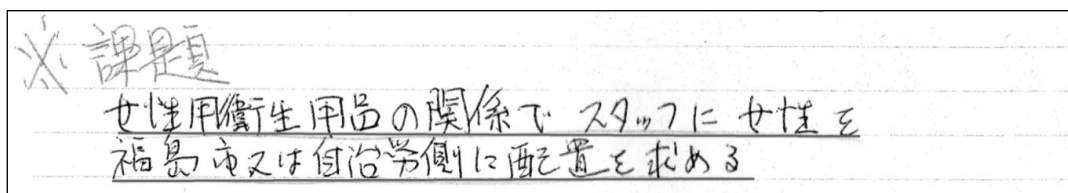 ※ 課題
女性用衛生用品の関係で スタッフに 女性を
福島市又は自治労側に配置を求める